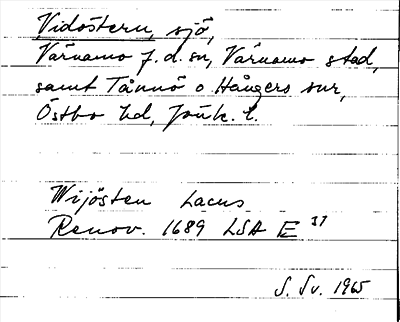 Vidöstern, sjö,
Värnamo f.d. sn, Värnamo stad,
samt Tånnö o. Hångers snr,
Östbo hd, Jönk. l.
Wijösten Lacus
Renov. 1689 LSA E 37
S. Sv. 1965